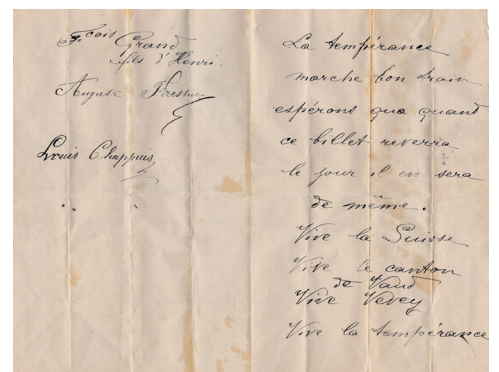 Fcois Grand
fils d'Henri.
Auguste
Louis Chappuis
La tempérance
marche bon train
espérons que quand
ce billet reverra
le jour il en sera
de même.
Vive la Suisse
Vive le canton
de Vaud
Vive Vevey
Vive la tempérance